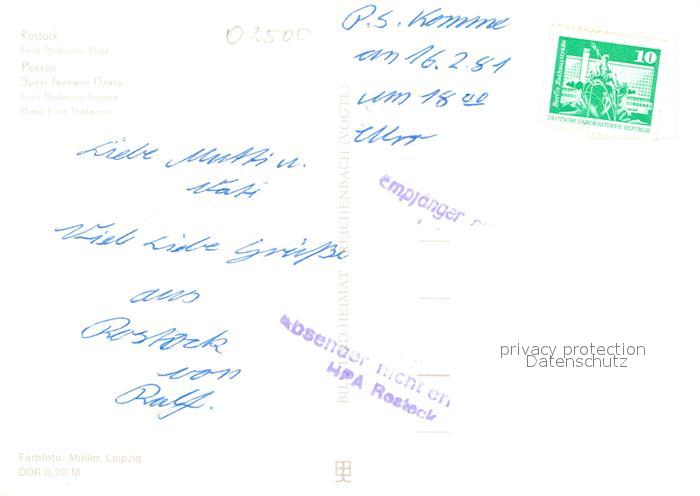 Rostock
Ernst-Thälmann-Platz
Росток
Эрнст Тельманн Платц
Ernst Thälmann Square
Place Ernst Thälmann
02500
P.S. Komme
am 16.2.81
um 18 00
Uhr
10
Berlin, Rathausstraße
DEUTSCHE DEMOKRATISCHE REPUBLIK
Liebe Mutti u.
Vati
Viele Liebe Grüße
aus
Rostock
von
Ralf.
empfänger
absender nicht en
HPA Rostock
BILD UND HEIMAT REICHENBACH (VOGTL)
privacy protection
Datenschutz
Farbfoto: Müller, Leipzig
DDR 0,20 M